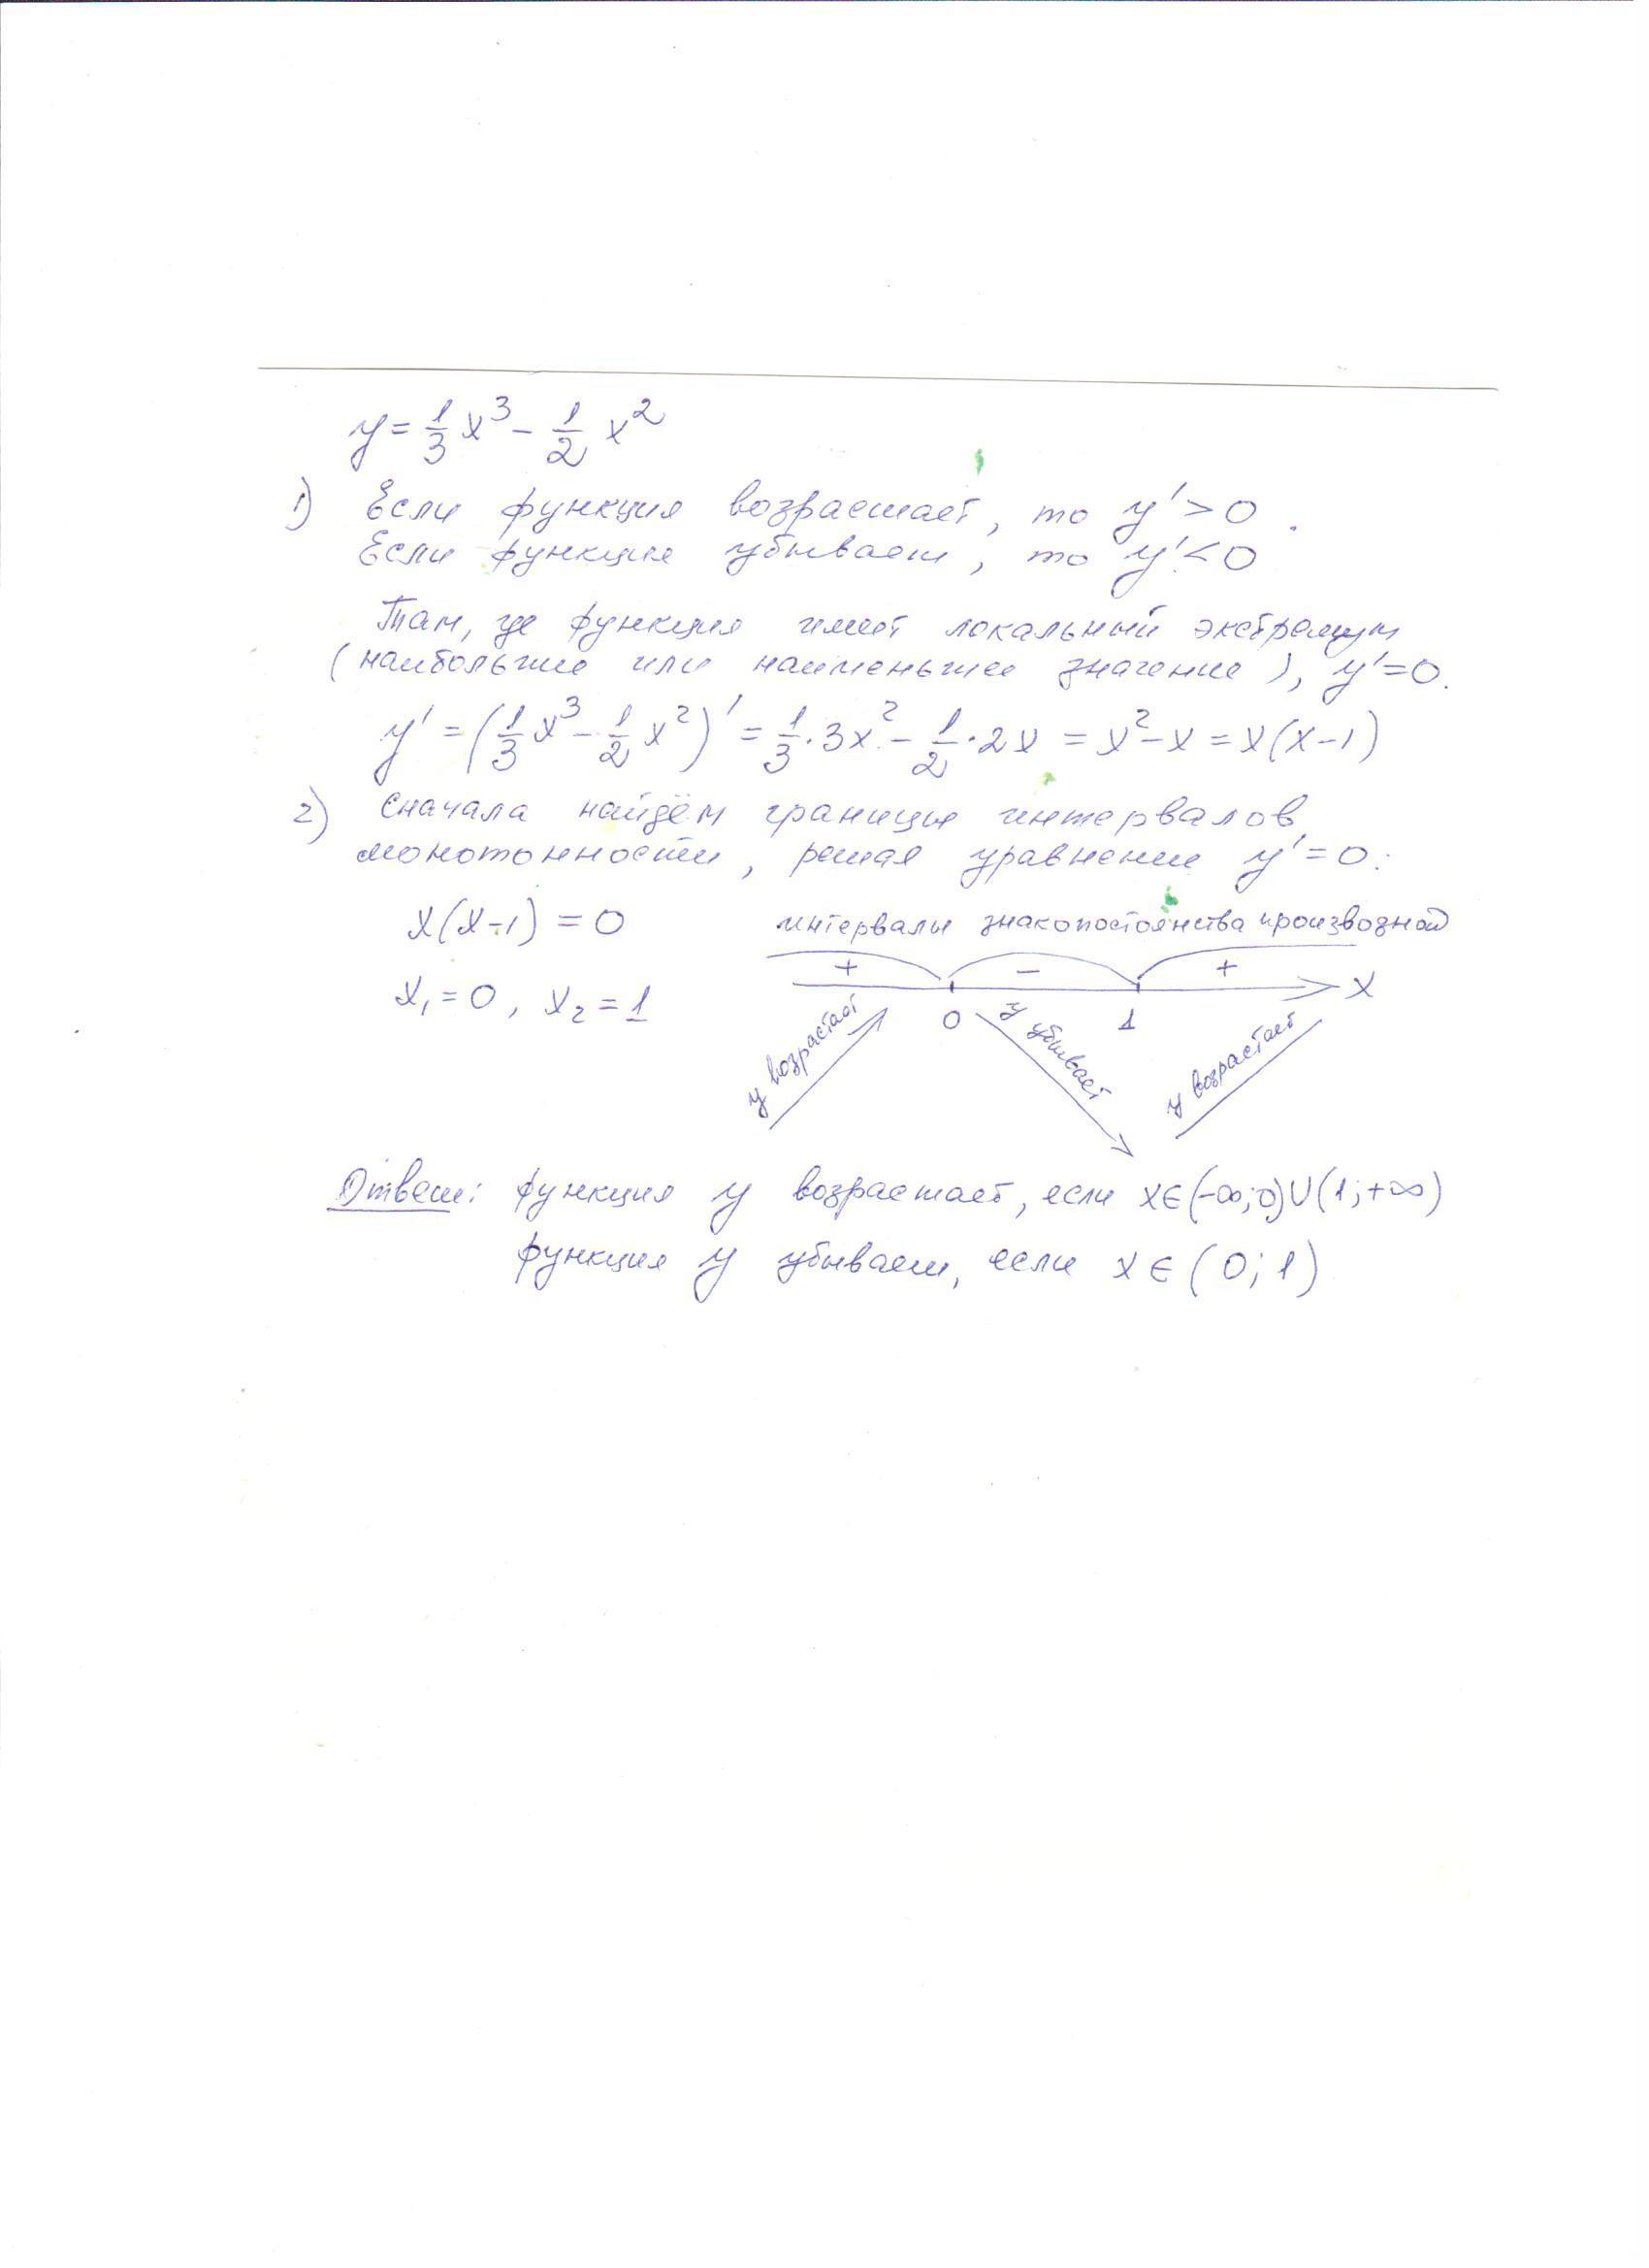 y = 1/3 x³ - 1/2 x²
1) Если функция возрастает, то y' > 0.
Если функция убывает, то y' < 0
Там, где функция имеет локальный экстремум
(наибольшее или наименьшее значение), y' = 0.
y' = (1/3 x³ - 1/2 x²)' = 1/3 · 3x² - 1/2 · 2x = x² - x = x(x-1)
2) Сначала найдём границы интервалов
монотонности, решая уравнение y' = 0:
x(x-1) = 0
x₁ = 0, x₂ = 1
интервалы знакопостоянства производной
+ - +
0 1 x
y возрастает y убывает y возрастает
Ответ: функция y возрастает, если x∈(-∞;0)∪(1;+∞)
функция y убывает, если x∈(0;1)